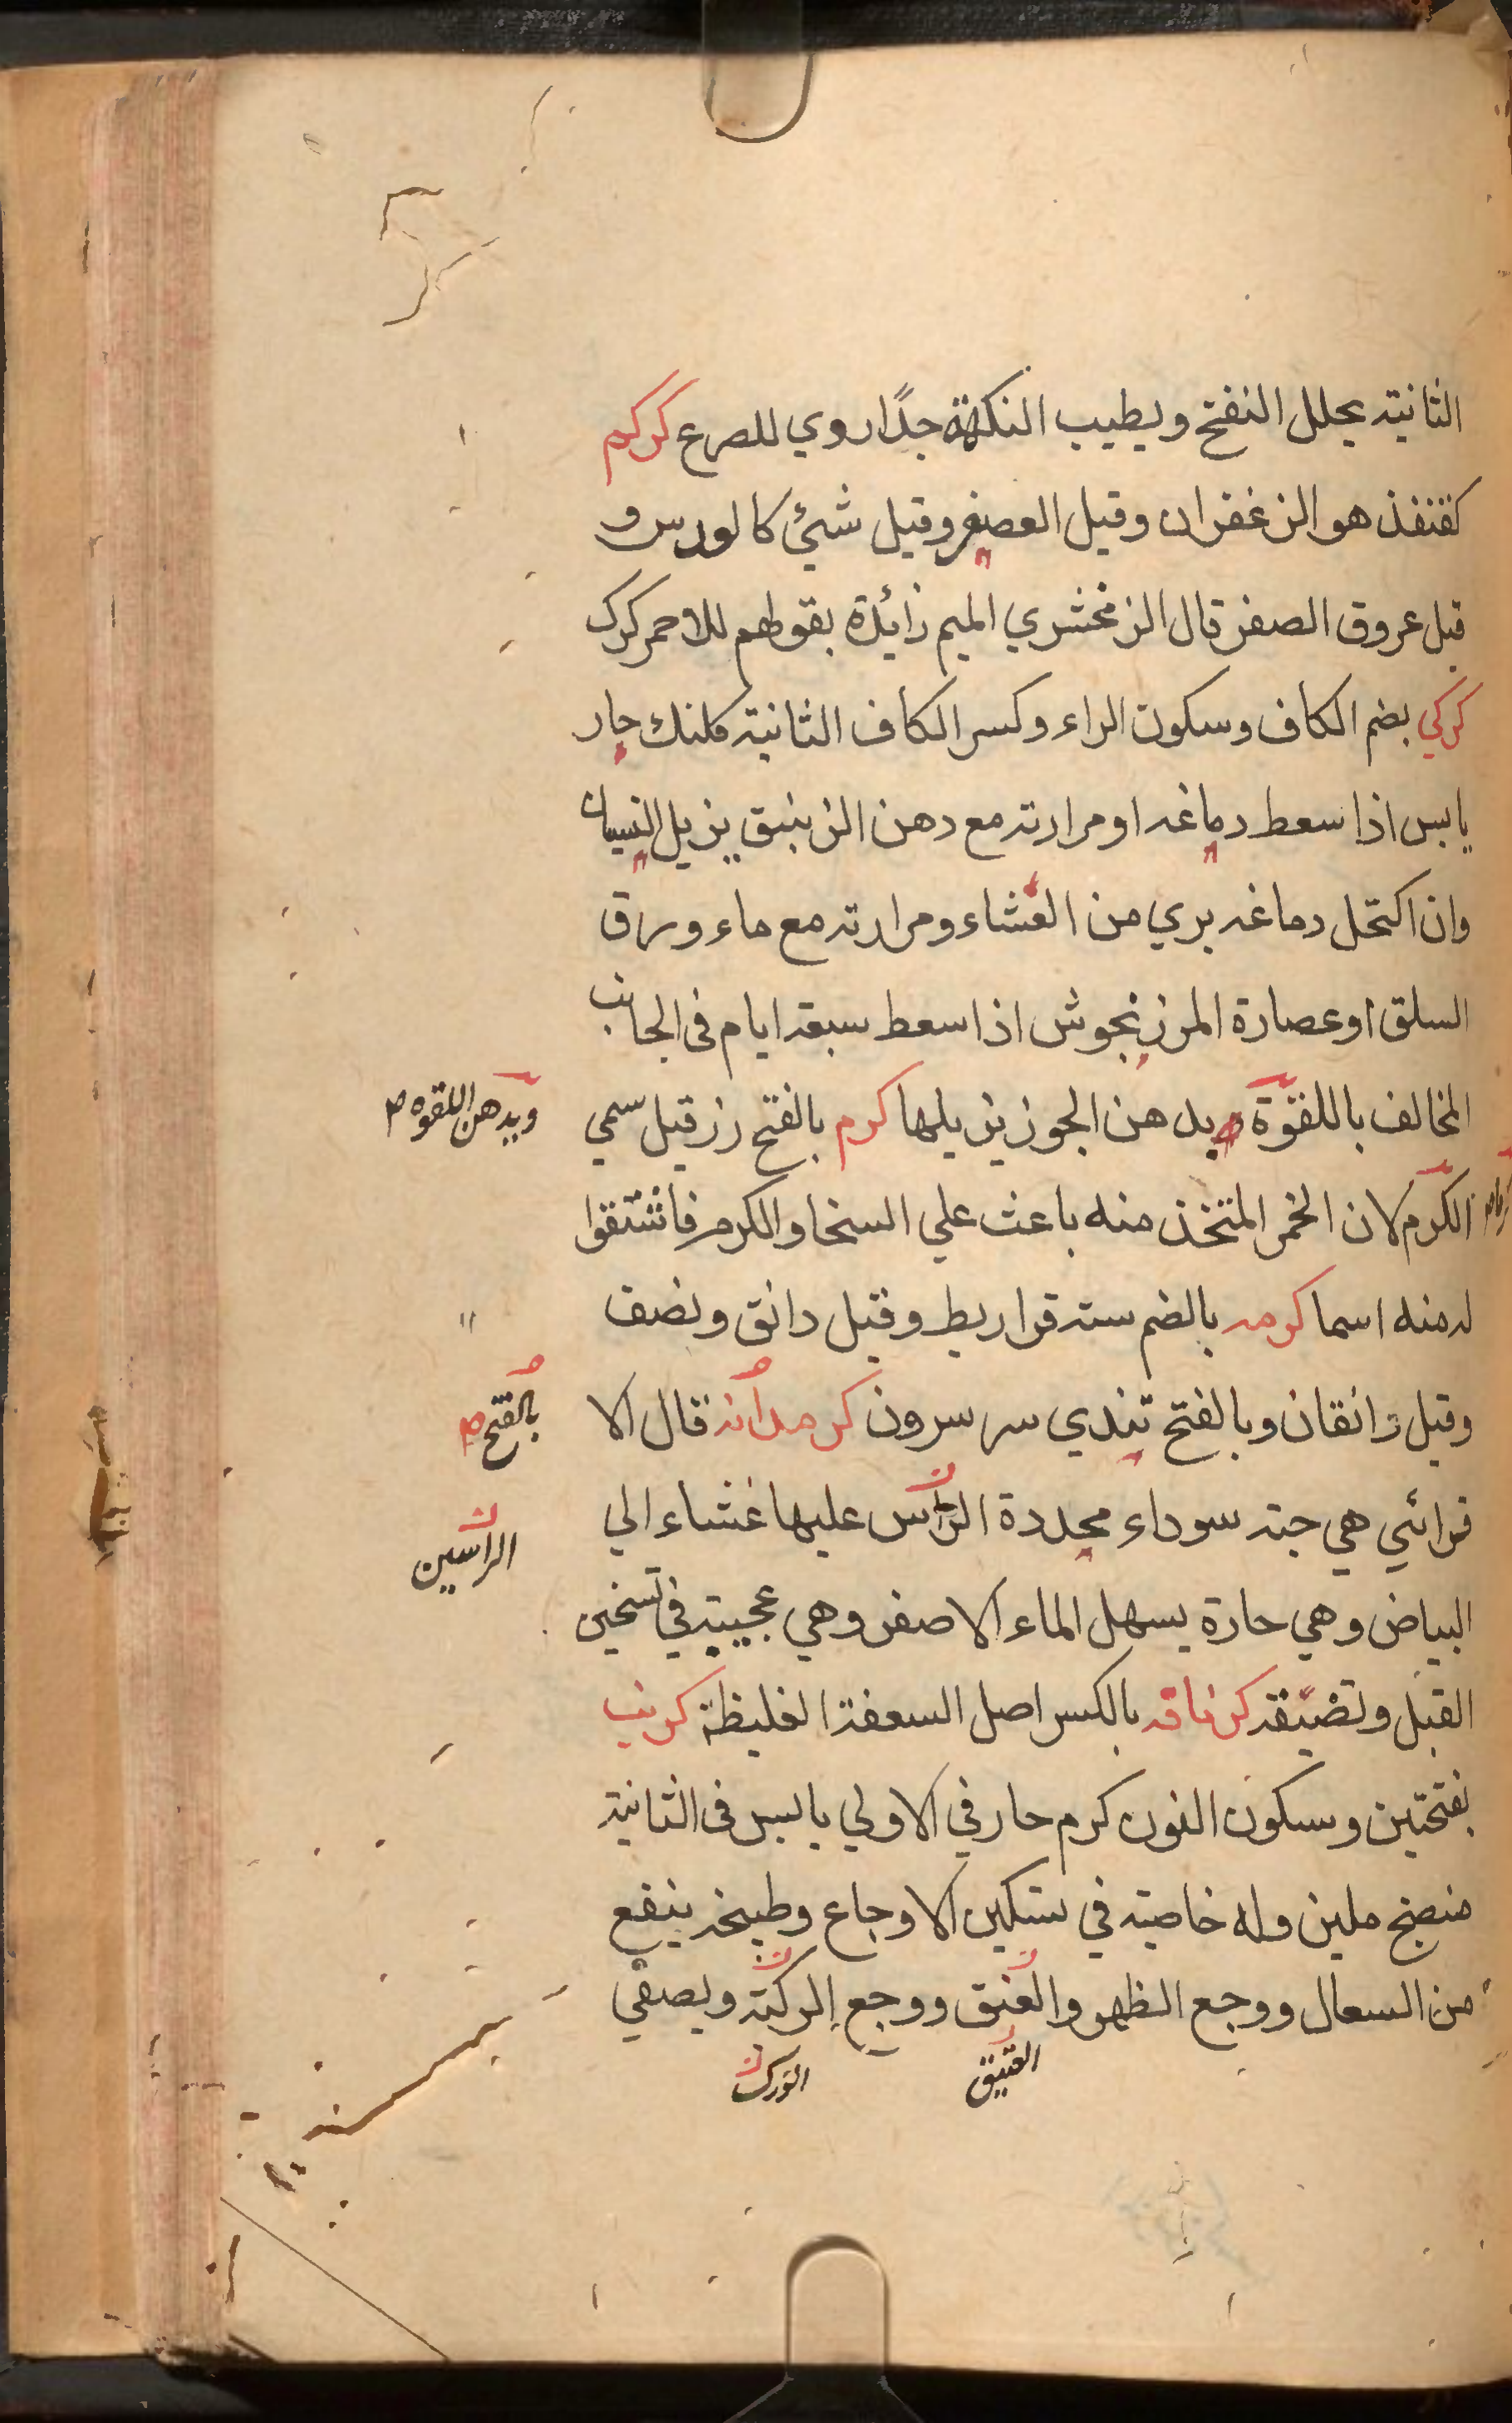 الثانية يحلل النفخ ويطيب النكهة جدًا روي للصرع كركم
كقنفذ هو الزعفران وقيل العصفر وقيل شئ كالورس و
قيل عروق الصفر قال الزمخشري الميم زائدة بقولهم للاحمر كرك
كركي بضم الكاف وسكون الراء وكسر الكاف الثانية كلنك حار
يابس اذا سعط دماغه او مرارته مع دهن الزنبق يزيل النسيان
وان اكتحل دماغه بري من العشاء ومرارته مع ماء ورق
السلق او عصارة المرزنجوش اذا سعط سبعة ايام في الجانب
المخالف باللقوّة وبدهن الجوز يزيلها كرم بالفتح رز قيل سمي
الكرم لان الخمر المتخذ منه باعث علي السخا والكرم فاشتقوا
له منه اسما كرمه بالضم ستة قراريط وقيل دانق ونصف
وقيل دانقان وبالفتح تندي سر سرون كرمدانه قال الا
قرائي هي حبة سوداء محددة الرأس عليها غشاء الي
البياض وهي حارة يسهل الماء الاصفر وهي عجيبة في تسخين
القبل وتضيقه كرناقه بالكسر اصل السعفة الغليظة كرنب
بفتحتين وسكون النون كرم حار في الاولي يابس في الثانية
منضج ملين وله خاصية في تسكين الاوجاع وطبيخه ينفع
من السعال ووجع الظهر والعنق ووجع الركبة ويصفي
وبدهن اللقوه
بالفتح
الرأسين
العتيق
الورك